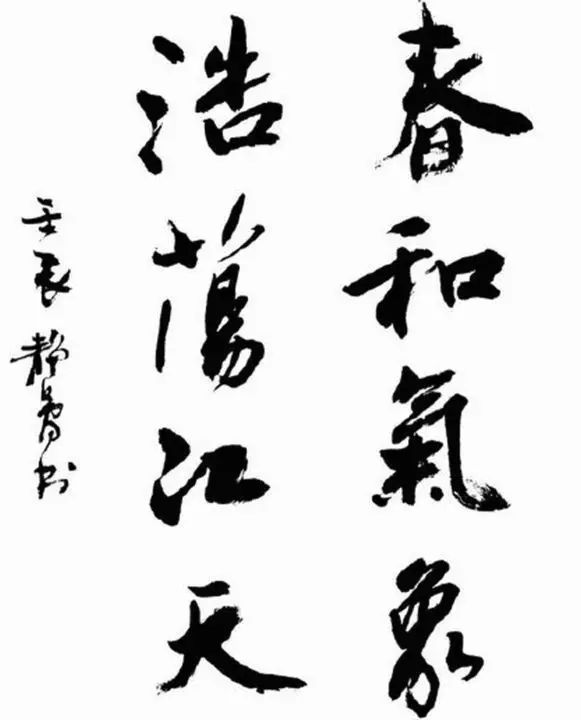 春和氣象
浩蕩江天
壬辰靜